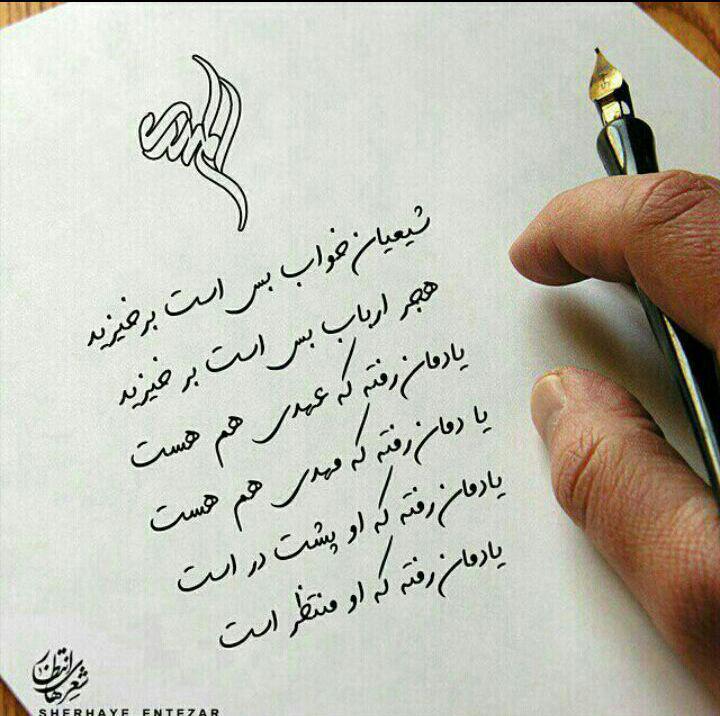 المهدی
شیعیان خواب بس است برخیزید
هجر ارباب بس است بر خیزید
یادمان رفته که عهدی هم هست
یادمان رفته که مهدی هم هست
یادمان رفته که او پشت در است
یادمان رفته که او منتظر است
شعرهای انتظار
SHERHAYE ENTEZAR